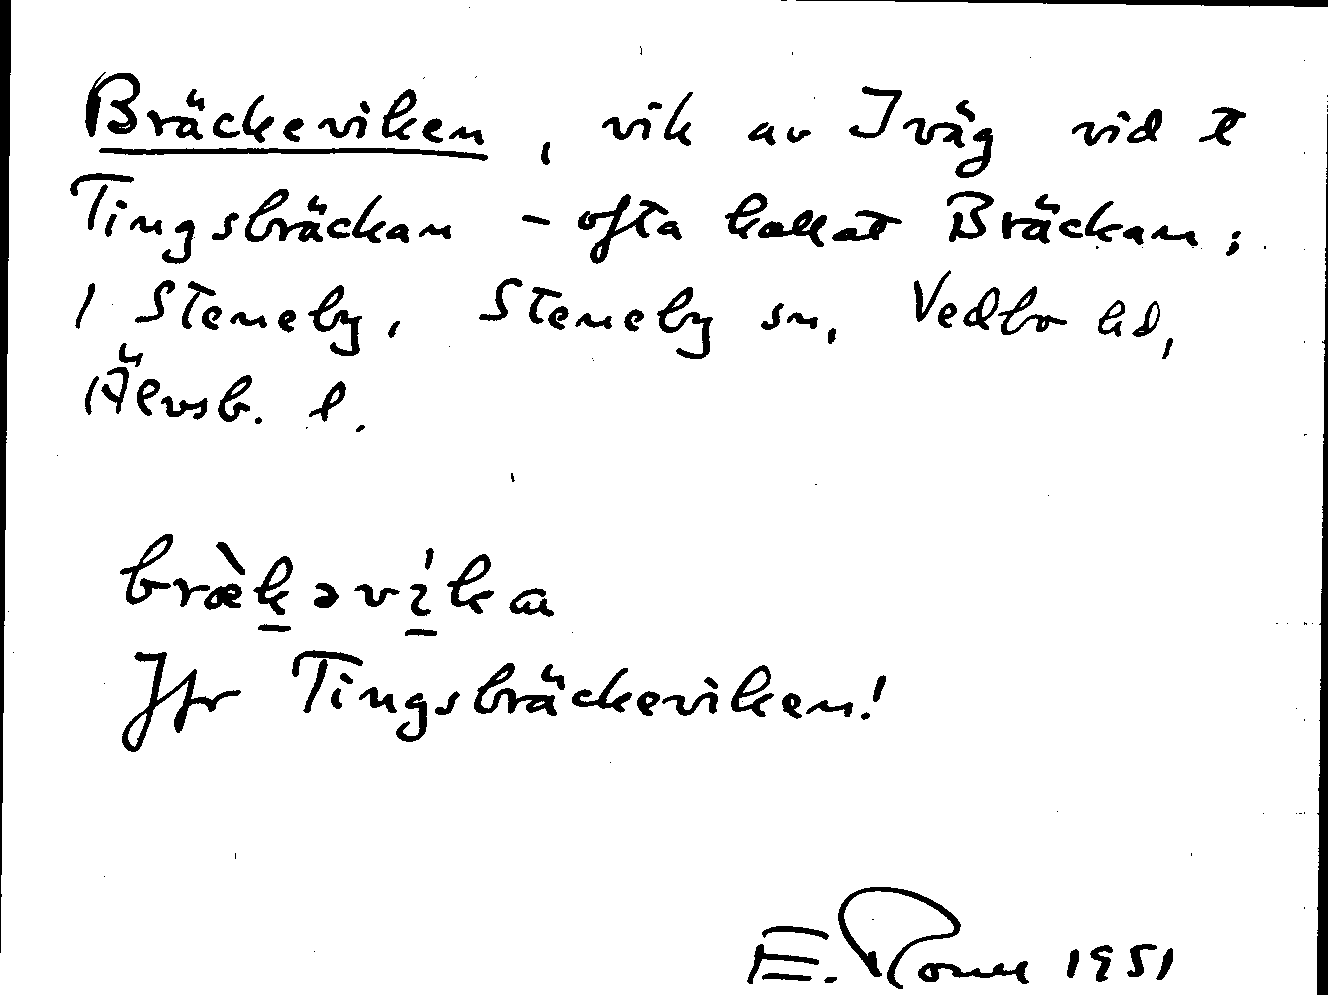 Bräckeviken, vik av Iväg vid t
Tingsbräckan - ofta kallat Bräckan;
i Steneby, Steneby sn, Vedbo hd,
Älvsb. l.
bræ̀kəvíka
Jfr Tingsbräckeviken!
E. 1951